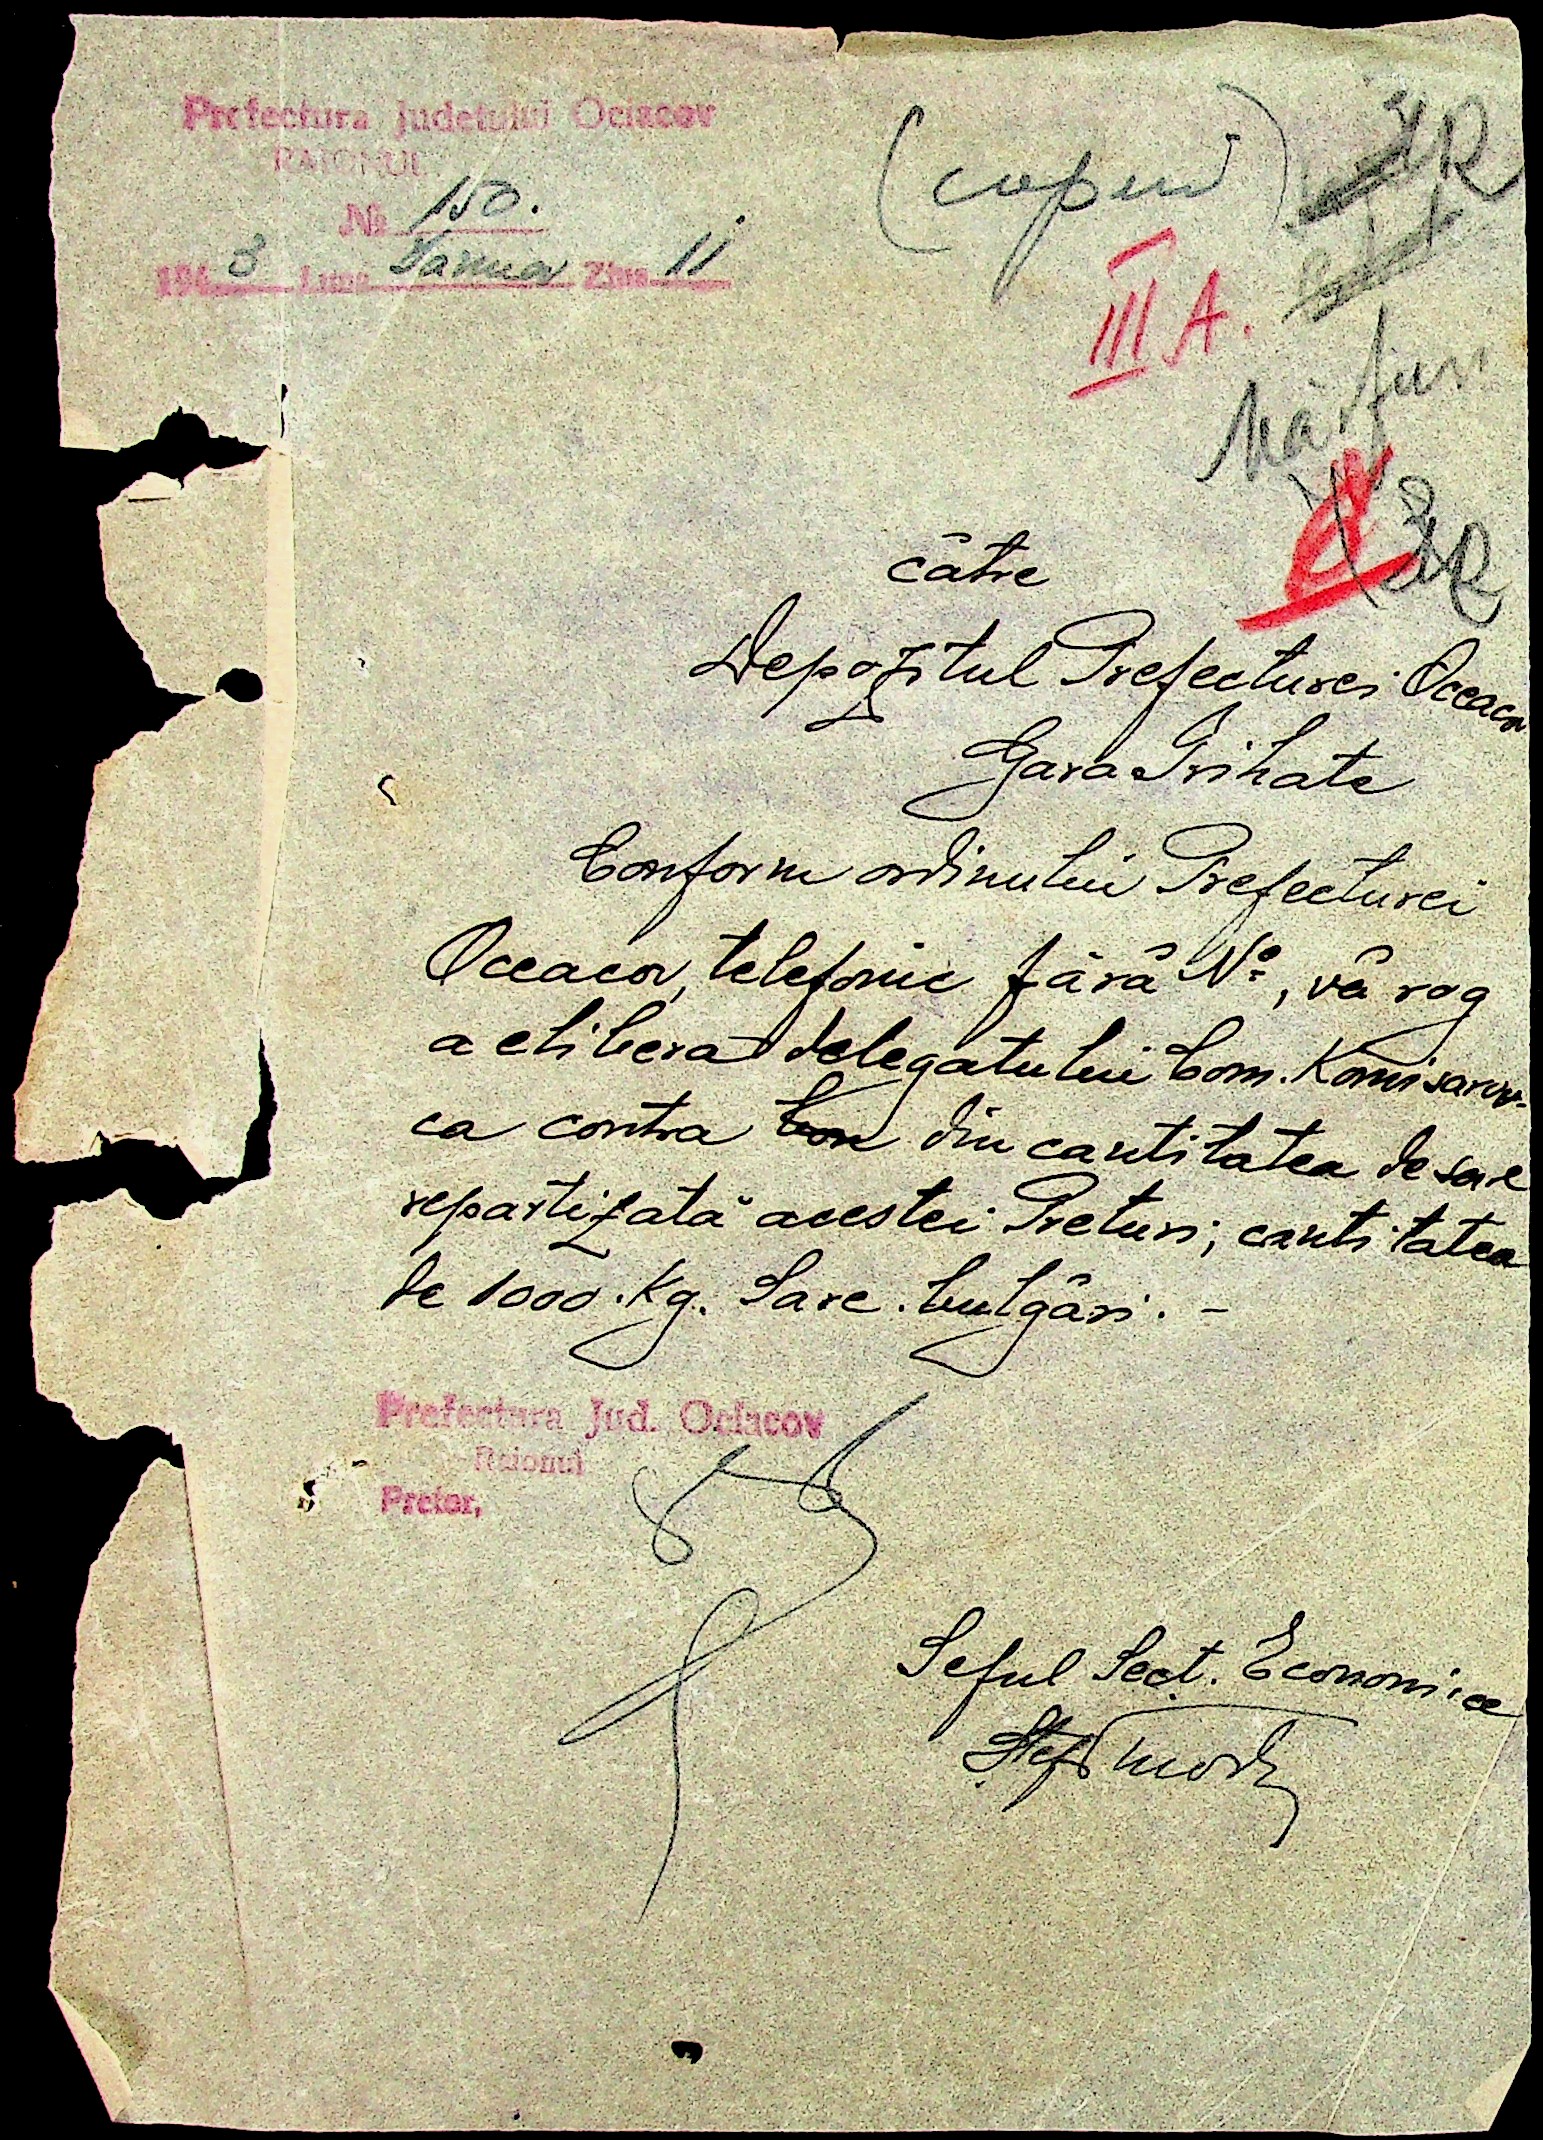 Prefectura Judetului Ociacov
RAIONUL
№ 150.
1943 Luna Ianuar Ziua 11
III A.
Mărfuri
către
Depozitul Prefecturei Oceacov
Gara Trihate
Conform ordinului Prefecturei
Oceacov, telefonic fără №, vă rog
a elibera delegatului Com. Komisarov-
ca contra bon din cantitatea de sare
repartizată acestei Preturi; cantitatea
de 1000.Kg. Sare bulgări. -
Prefectura Jud. Ociacov
Raionul
Pretor,
Seful Sect. Economice